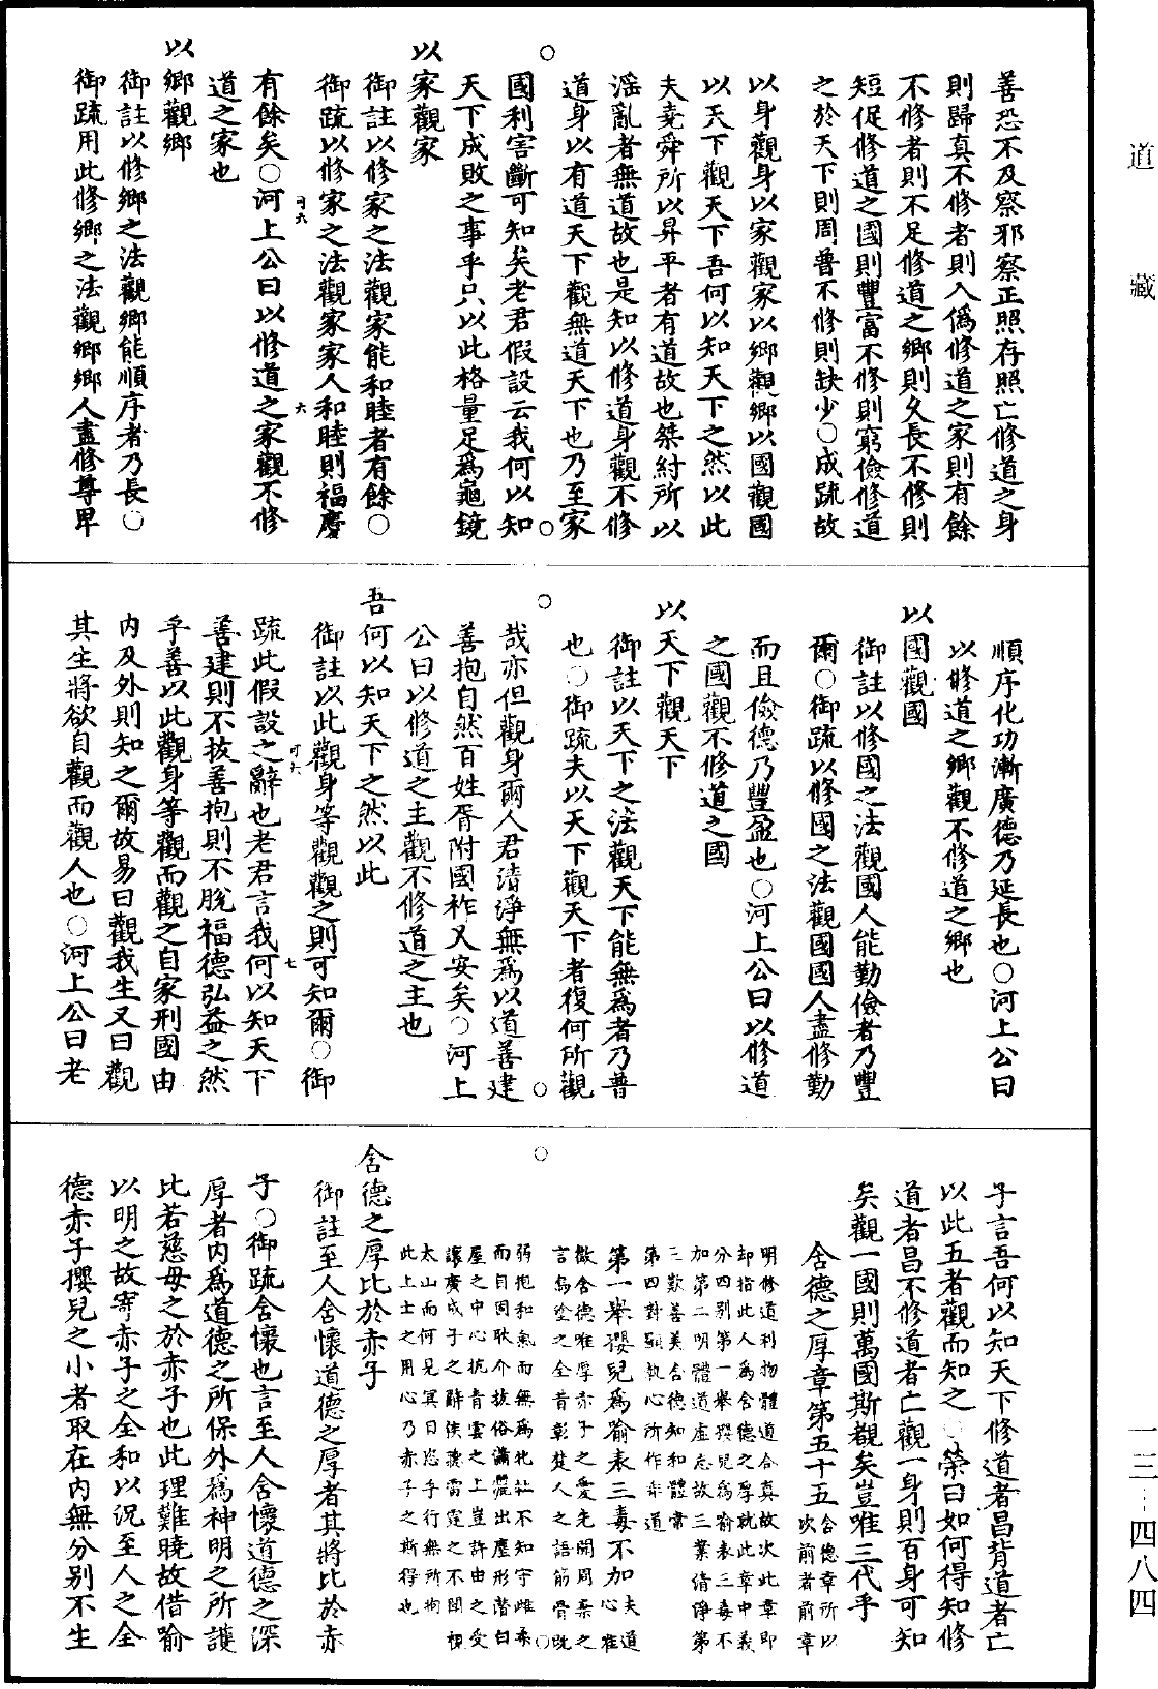 道藏
一三·四八四
善恐不及察邪察正照存照亡修道之身
則歸真不修者則入偽修道之家則有餘
不修者則不足修道之鄉則久長不修則
短促修道之國則豐富不修則窮儉修道
之於天下則周普不修則缺少○成疏故
以身觀身以家觀家以鄉觀鄉以國觀國
以天下觀天下吾何以知天下之然以此
夫堯舜所以昇平者有道故也桀紂所以
淫亂者無道故也是知以修道身觀不修
道身以有道天下觀無道天下也乃至家
國利害斷可知矣老君假設云我何以知
天下成敗之事乎只以此格量足為龜鏡
以家觀家
御註以修家之法觀家能和睦者有餘○
御疏以修家之法觀家家人和睦則福慶
有餘矣○河上公曰以修道之家觀不修
道之家也
以鄉觀鄉
御註以修鄉之法觀鄉能順序者乃長○
御疏用此修鄉之法觀鄉鄉人盡修尊卑
順序化功漸廣德乃延長也○河上公曰
以修道之鄉觀不修道之鄉也
以國觀國
御註以修國之法觀國人能勤儉者乃豐
爾○御疏以修國之法觀國國人盡修勤
而且儉德乃豐盈也○河上公曰以修道
之國觀不修道之國
以天下觀天下
御註以天下之法觀天下能無為者乃普
也○御疏夫以天下觀天下者復何所觀
哉亦但觀身爾人君清淨無為以道善建
善抱自然百姓胥附國祚乂安矣○河上
公曰以修道之主觀不修道之主也
吾何以知天下之然以此
御註以此觀身等觀觀之則可知爾○御
疏此假設之辭也老君言我何以知天下
善建則不拔善抱則不脫福德弘益之然
乎善以此觀身等觀而觀之自家刑國由
內及外則知之爾故易曰觀我生又曰觀
其生將欲自觀而觀人也○河上公曰老
子言吾何以知天下修道者昌背道者亡
以此五者觀而知之○榮曰如何得知修
道者昌不修道者亡觀一身則百身可知
矣觀一國則萬國斯覩矣豈唯三代乎
含德之厚章第五十五
含德章所以
次前者前章
明修道利物體道合真故次此章即
却指此人為含德之厚就此章中義
分四別第一舉嬰兒為喻表三毒不
加第二明體道虛忘故三業清淨第
三歎善美含德知和體常
第四對顯執心所作非道
第一舉孾兒為喻表三毒不加
夫道
心唯
微含德唯厚赤子之愛先開周柔之
言烏塗之全昔彰楚人之語筋骨既
弱抱和氣而無為牝牡不知守雌柔
而自同耿介拔俗瀟灑出塵形潛白
屋之中心抗青雲之上豈許由之受
讓廣成子之辭侯聽雷霆之不聞視
太山而何見冥目恣乎行無所拘
此上士之用心乃赤子之斯得也
含德之厚比於赤子
御註至人含懷道德之厚者其將比於赤
子○御疏含懷也言至人含懷道德之深
厚者內為道德之所保外為神明之所護
比若慈母之於赤子也此理難曉故借喻
以明之故寄赤子之全和以況至人之全
德赤子孾兒之小者取在內無分別不生